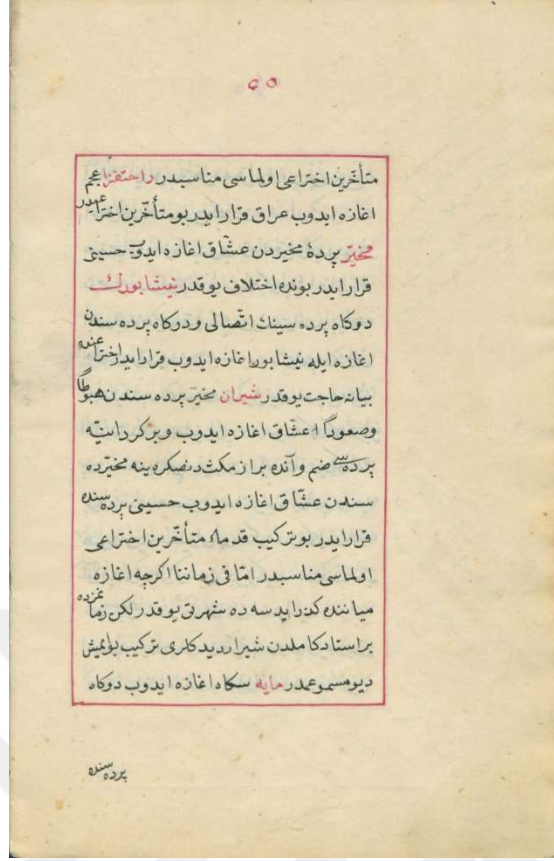 ٥٥
متأخّرين اختراعى اولماسى مناسبدر راحتفزا عجم
اغازه ايدوب عراق قرار ايدر بو متأخّرين اختراعيدر
مخيّر پردۀ مخيردن عشّاق اغازه ايدوب حسينى
قرار ايدر بونده اختلاف يوقدر نيشابورك
دوكاه پرده سينك اتّصالى ودركاه پرده سندن
اغازه ايله نيشابور اغازه ايدوب قرار ايدر اختراعنده
بيانه حاجت يوقدر شيران مخيّر پرده سندن هبوطا
وصعوداً عشّاق اغازه ايدوب ويركردانيّه
پرده سى ضم وآنده براز مكث دنصكره ينه مخيّر ده
سندن عشّاق اغازه ايدوب حسينى پرده سنده
قرار ايدر بو تركيب قدما متأخّرين اختراعى
اولماسى مناسبدر امّا فى زماننا اكرچه اغازه
مياننده كذرايدسه ده شهرتى يوقدر لكن زمانمزده
بر استاد كاملدن شيرار ديدكلرى تركيب بو ايمش
ديو مسموعمدر مايه سكاه اغازه ايدوب دوكاه
پرده سنده